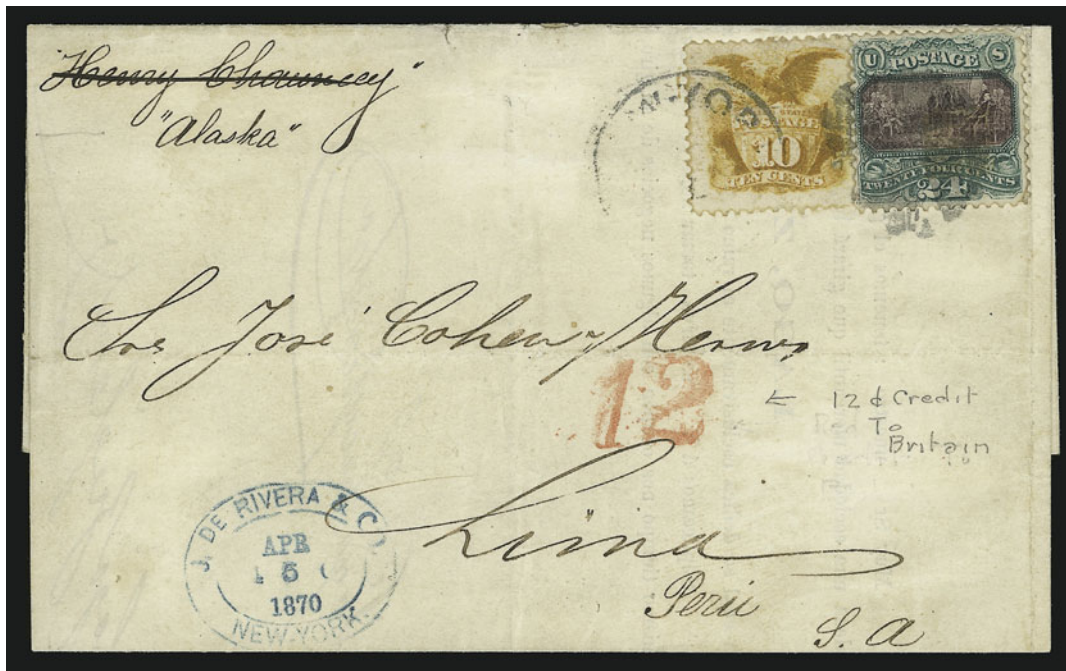 Henry Chauncey"
"Alaska"
U S
POSTAGE
POSTAGE
10
TEN CENTS
TWENTY FOUR CENTS
24
W-YOR
José Cohen y Hermo
12
← 12¢ Credit
To
Britain
J. DE RIVERA & Co.
APR
5
1870
NEW-YORK.
Lima
Perú
S. A